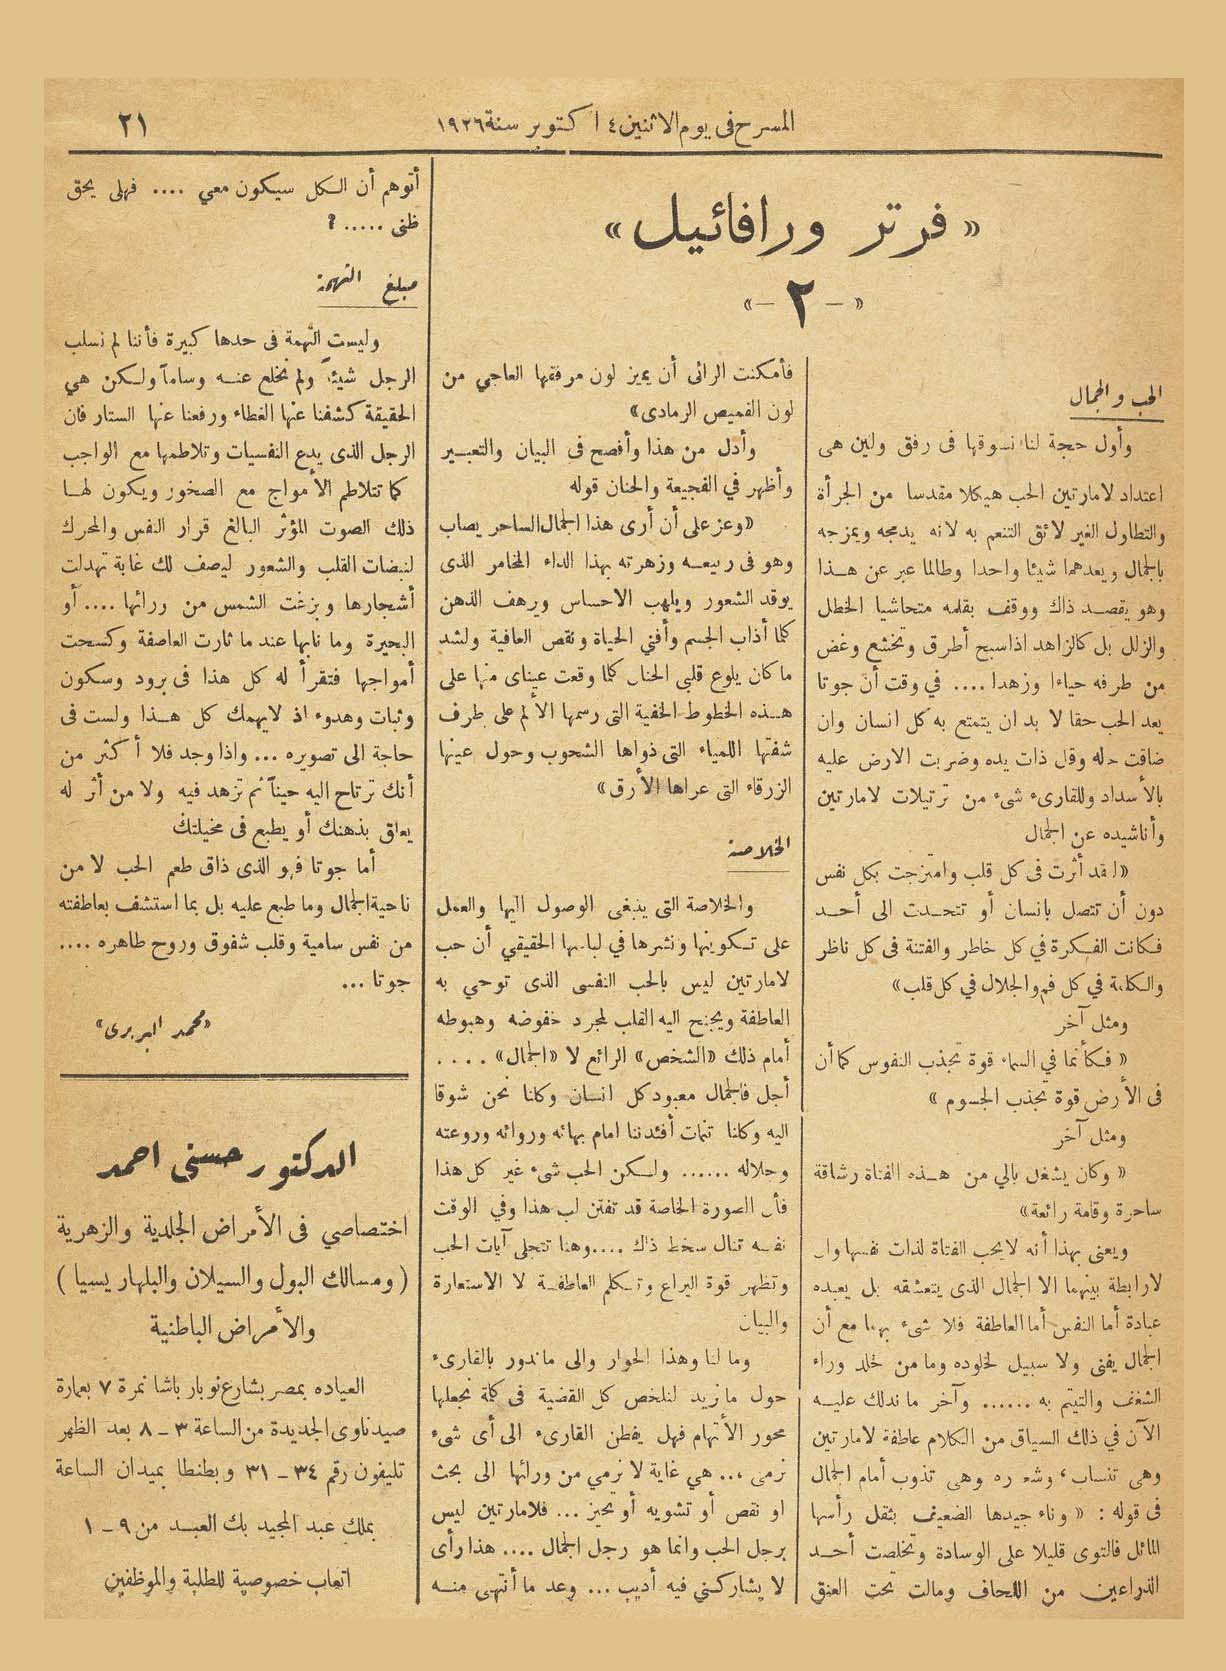 المسرح في يوم الاثنين ٤ اكتوبر سنة ١٩٢٦
٢١
« فرتر ورافائيل »
« – ٢ – »
الحب والجمال
وأول حجة لنا نسوقها فى رفق ولين هى
اعتداد لامارتين الحب هيكلا مقدسا من الجرأة
والتطاول الغير لائق التنعم به لانه يدمجه ويمزجه
بالجمال ويعدهما شيئا واحدا وطالما عبر عن هذا
وهو يقصد ذاك ووقف بقلمه متحاشيا الخطل
والزلل بل كالزاهد اذا سبح أطرق وتخشع وغض
من طرفه حياءا وزهدا .... في وقت أن جوتا
يعد الحب حقا لا بد ان يتمتع به كل انسان وان
ضاقت حاله وقل ذات يده وضربت الارض عليه
بالأسداد وللقارىء شىء من ترتيلات لامارتين
وأناشيده عن الجمال
« لقد أثرت فى كل قلب وامتزجت بكل نفس
دون أن تتصل بانسان أو تتحدث الى أحد
فكانت الفكرة في كل خاطر والفتنة فى كل ناظر
والكلمة في كل فم والجلال في كل قلب »
ومثل آخر
« فكأنما في السماء قوة تجذب النفوس كما أن
فى الأرض قوة تجذب الجسوم »
ومثل آخر
« وكان يشغل بالي من هذه الفتاة رشاقة
ساحرة وقامة رائعة »
ويعنى بهذا أنه لا يحب الفتاة لذات نفسها وان
لا رابطة بينهما الا الجمال الذى يتعشقه بل يعبده
عبادة أما النفس أما العاطفة فلا شىء بهما مع أن
الجمال يفنى ولا سبيل لخلوده وما من خلد وراء
الشغف والتيتم به ...... وآخر ما ندلك عليه
الآن في ذلك السياق من الكلام عاطفة لامارتين
وهى تنساب، وشعوره وهى تذوب أمام الجمال
فى قوله : « وناء جيدها الضعيف بثقل رأسها
المائل فالتوى قليلا على الوسادة وتخلصت أحد
الذراعين من اللحاف ومالت تحت العنق
فأمكنت الرائى أن يميز لون مرفقها العاجي من
لون القميص الرمادى »
وأدل من هذا وأفصح فى البيان والتعبير
وأظهر في الفجيعة والحنان قوله
« وعز على أن أرى هذا الجمال الساحر يصاب
وهو فى ربيعه وزهرته بهذا الداء المخامر الذى
يوقد الشعور ويلهب الاحساس ويرهف الذهن
كلما أذاب الجسم وأفني الحياة ونقص العافية ولشد
ما كان يلوع قلبى الحنان كلما وقعت عيناى منها على
هذه الخطوط الخفية التى رسمها الألم على طرف
شفتها اللمياء التى ذواها الشحوب وحول عينها
الزرقاء التى عراها الأرق »
الخلاصة
والخلاصة التى ينبغى الوصول اليها والعمل
على تكوينها ونشرها في لباسها الحقيقي أن حب
لامارتين ليس بالحب النفسى الذى توحي به
العاطفة ويجنح اليه القلب لمجرد خفوضه وهبوطه
أمام ذلك « الشخص » الرائع لا « الجمال » ....
أجل فالجمال معبود كل انسان وكلنا نحن شوقا
اليه وكلنا تنمات أفئدتنا امام بهائه وروائه وروعته
وجلاله ...... ولكن الحب شىء غير كل هذا
فأن الصورة الخاصة قد تفتن لب هذا وفي الوقت
نفسه تنال سخط ذاك .... وهنا تتجلى آيات الحب
وتظهر قوة اليراع وتتكلم العاطفة لا الاستعارة
والبيان
وما لنا وهذا الحوار والى ما ندور بالقارىء
حول ما نريد لنلخص كل القضية فى كلمة نجعلها
محور الأتهام فهل يفطن القارىء الى أى شىء
نرمى ... هي غاية لا نرمي من ورائها الى بحث
او نقص أو تشويه أو تحيز ... فلامارتين ليس
برجل الحب وانما هو رجل الجمال .... هذا رأى
لا يشاركني فيه أديب ... وعند ما أنتهى منه
أتوهم أن الكل سيكون معي .... فهلى يحق
ظنى ..... ؟
مبلغ التهمة
وليست التُهمة فى حدها كبيرة فأننا لم نسلب
الرجل شيئاً ولم نخلع عنه وساماً ولكن هي
الحقيقة كشفنا عنها الغطاء ورفعنا عنها الستار فان
الرجل الذى يدع النفسيات وتلاطمها مع الواجب
كما تتلاطم الأمواج مع الصخور ويكون لها
ذلك الصوت المؤثر البالغ قرار النفس والمحرك
لنبضات القلب والشعور ليصف لك غابة تهدلت
أشجارها وبزغت الشمس من ورائها .... أو
البحيرة وما نابها عند ما ثارت العاصفة وكسحت
أمواجها فتقرأ له كل هذا فى برود وسكون
وثبات وهدوء اذ لا يهمك كل هذا ولست فى
حاجة الى تصويره ... واذا وجد فلا أكثر من
أنك ترتاح اليه حيناً ثم تزهد فيه ولا من أثر له
يعلق بذهنك أو يطبع فى مخيلتك
أما جوتا فهو الذى ذاق طعم الحب لا من
ناحية الجمال وما طبع عليه بل بما استشف بعاطفته
من نفس سامية وقلب شفوق وروح طاهره ....
جوتا ...
« محمد البربرى »
الدكتور حسنى احمد
اختصاصي فى الأمراض الجلدية والزهرية
( ومسالك البول والسيلان والبلهارسيا )
والأمراض الباطنية
العياده بمصر بشارع نوبار باشا نمرة ٧ بعمارة
صيدناوى الجديدة من الساعة ٣ – ٨ بعد الظهر
تليفون رقم ٣٤ – ٣١ وبطنطا بميدان الساعة
بملك عبد المجيد بك العبد من ٩ – ١
اتعاب خصوصية للطلبة والموظفين